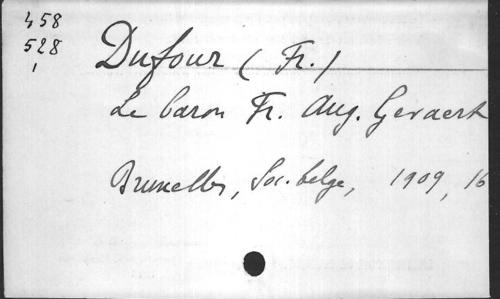 458
528
1
Dufour (Fr.)
Le baron Fr. Aug. Gevaert
Bruxelles, Soc. belge, 1909, 16